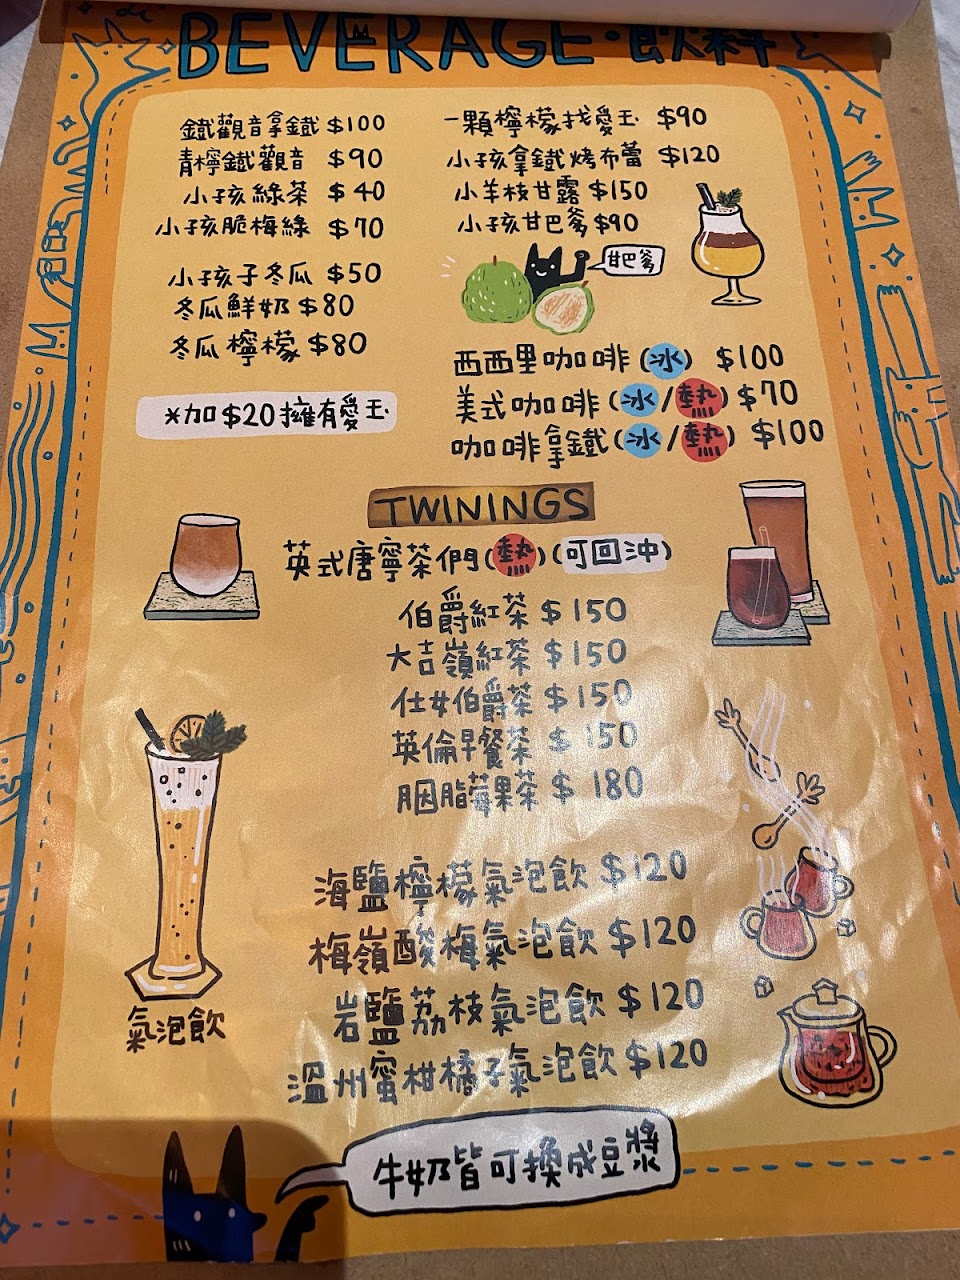 BEVERAGE·飲料
鐵觀音拿鐵 $100
青檸鐵觀音 $90
小孩綠茶 $40
小孩脆梅綠 $70
小孩子冬瓜 $50
冬瓜鮮奶 $80
冬瓜檸檬 $80
*加$20擁有愛玉
一顆檸檬找愛玉 $90
小孩拿鐵烤布蕾 $120
小羊枝甘露 $150
小孩甘巴爹 $90
甘巴爹
西西里咖啡(冰) $100
美式咖啡(冰/熱) $70
咖啡拿鐵(冰/熱) $100
TWININGS
英式唐寧茶們(熱)(可回沖)
伯爵紅茶 $150
大吉嶺紅茶 $150
仕女伯爵茶 $150
英倫早餐茶 $150
胭脂莓果茶 $180
海鹽檸檬氣泡飲 $120
梅嶺酸梅氣泡飲 $120
岩鹽荔枝氣泡飲 $120
溫州蜜柑橘子氣泡飲 $120
氣泡飲
牛奶皆可換成豆漿